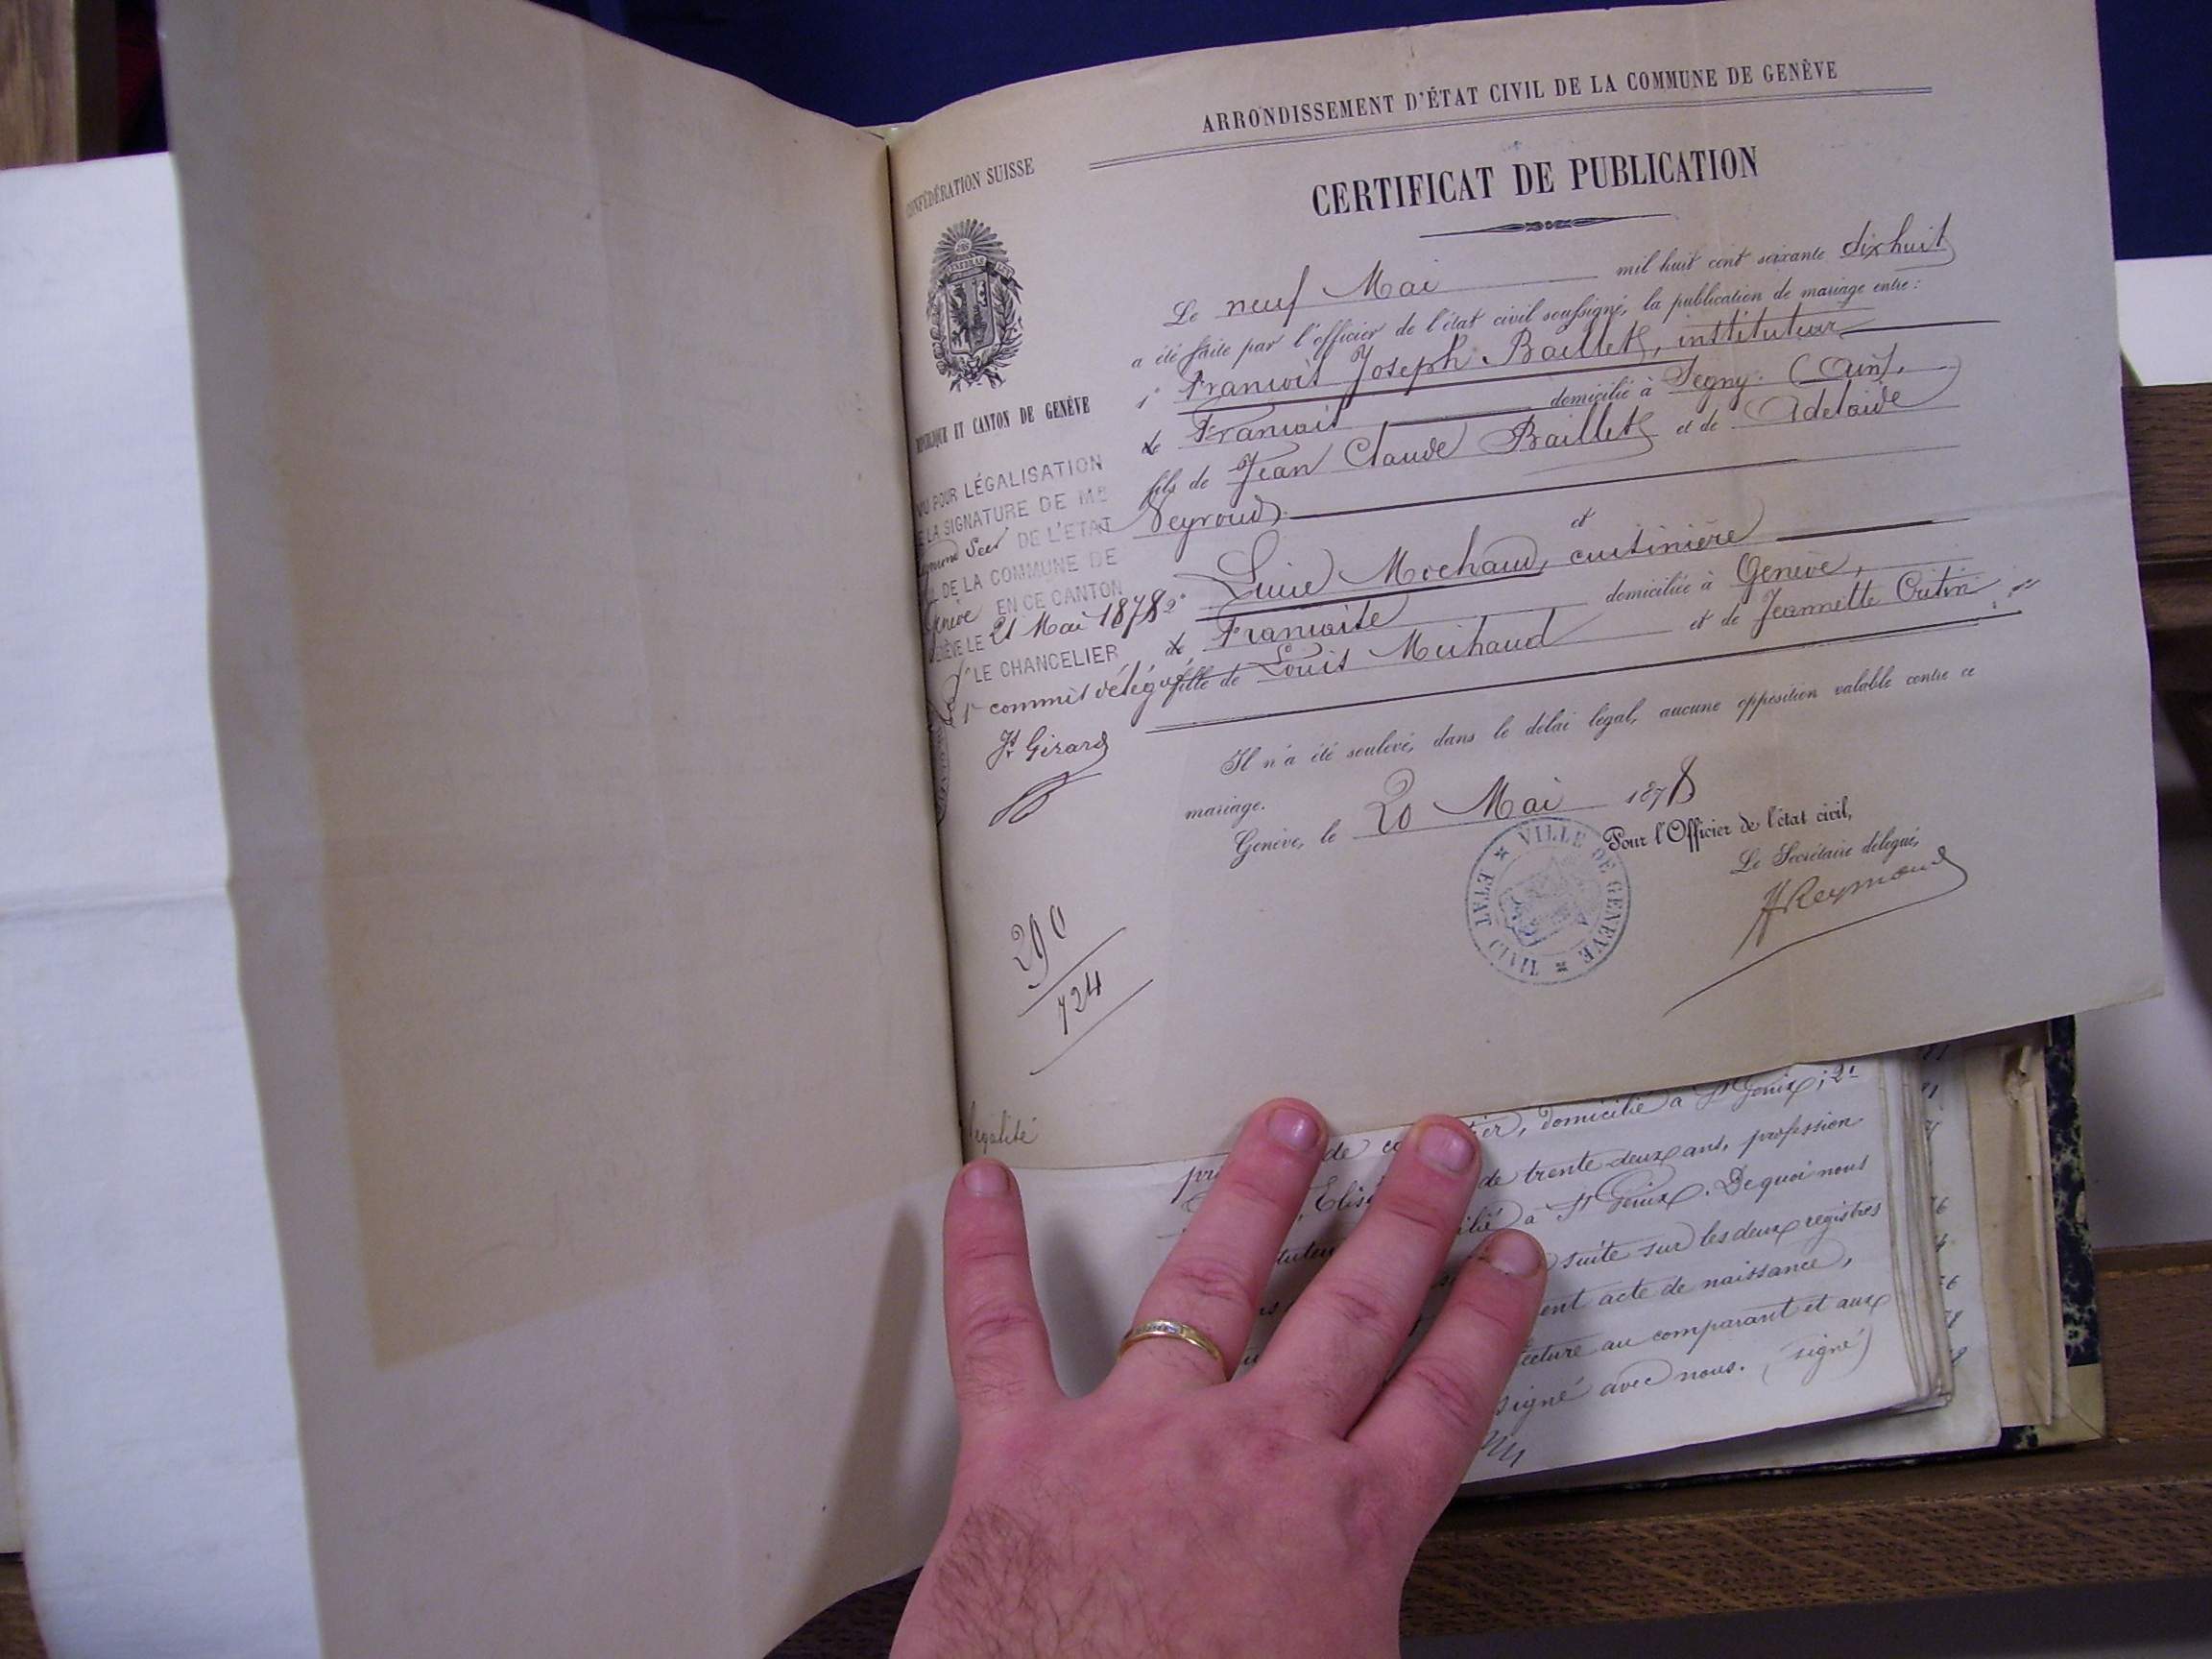 ARRONDISSEMENT D'ÉTAT CIVIL DE LA COMMUNE DE GENÈVE
CONFÉDÉRATION SUISSE
CERTIFICAT DE PUBLICATION
RÉPUBLIQUE ET CANTON DE GENÈVE
Le neuf Mai mil huit cent soixante dixhuit
a été faite par l'officier de l'état civil soussigné, la publication de mariage entre :
1° François Joseph Baillet, instituteur
de Français domicilié à Segny (Ain),
fils de Jean Claude Baillet et de Adelaide
Peyroud,
et
2° Lucie Mochaud, cuisinière
de Française domiciliée à Genève,
fille de Louis Michaud et de Jeannette Critin
Il n'a été soulevé, dans le délai légal, aucune opposition valable contre ce
mariage.
Genève, le 20 Mai 1878
Pour l'Officier de l'état civil,
Le Secrétaire délégué,
Reymond
VILLE DE GENEVE
ETAT CIVIL
VU POUR LÉGALISATION
DE LA SIGNATURE DE MR
DE L'ETAT
DE LA COMMUNE DE
Genève EN CE CANTON
GENÈVE LE 21 Mai 1878
LE CHANCELIER
commis délégué
Girard
290
724
légalité
domicilié à St Genix; 2t
de trente-deux ans, profession
à St Genix. De quoi nous
suite sur les deux registres
acte de naissance,
lecture au comparant et aux
signé avec nous. (signé)